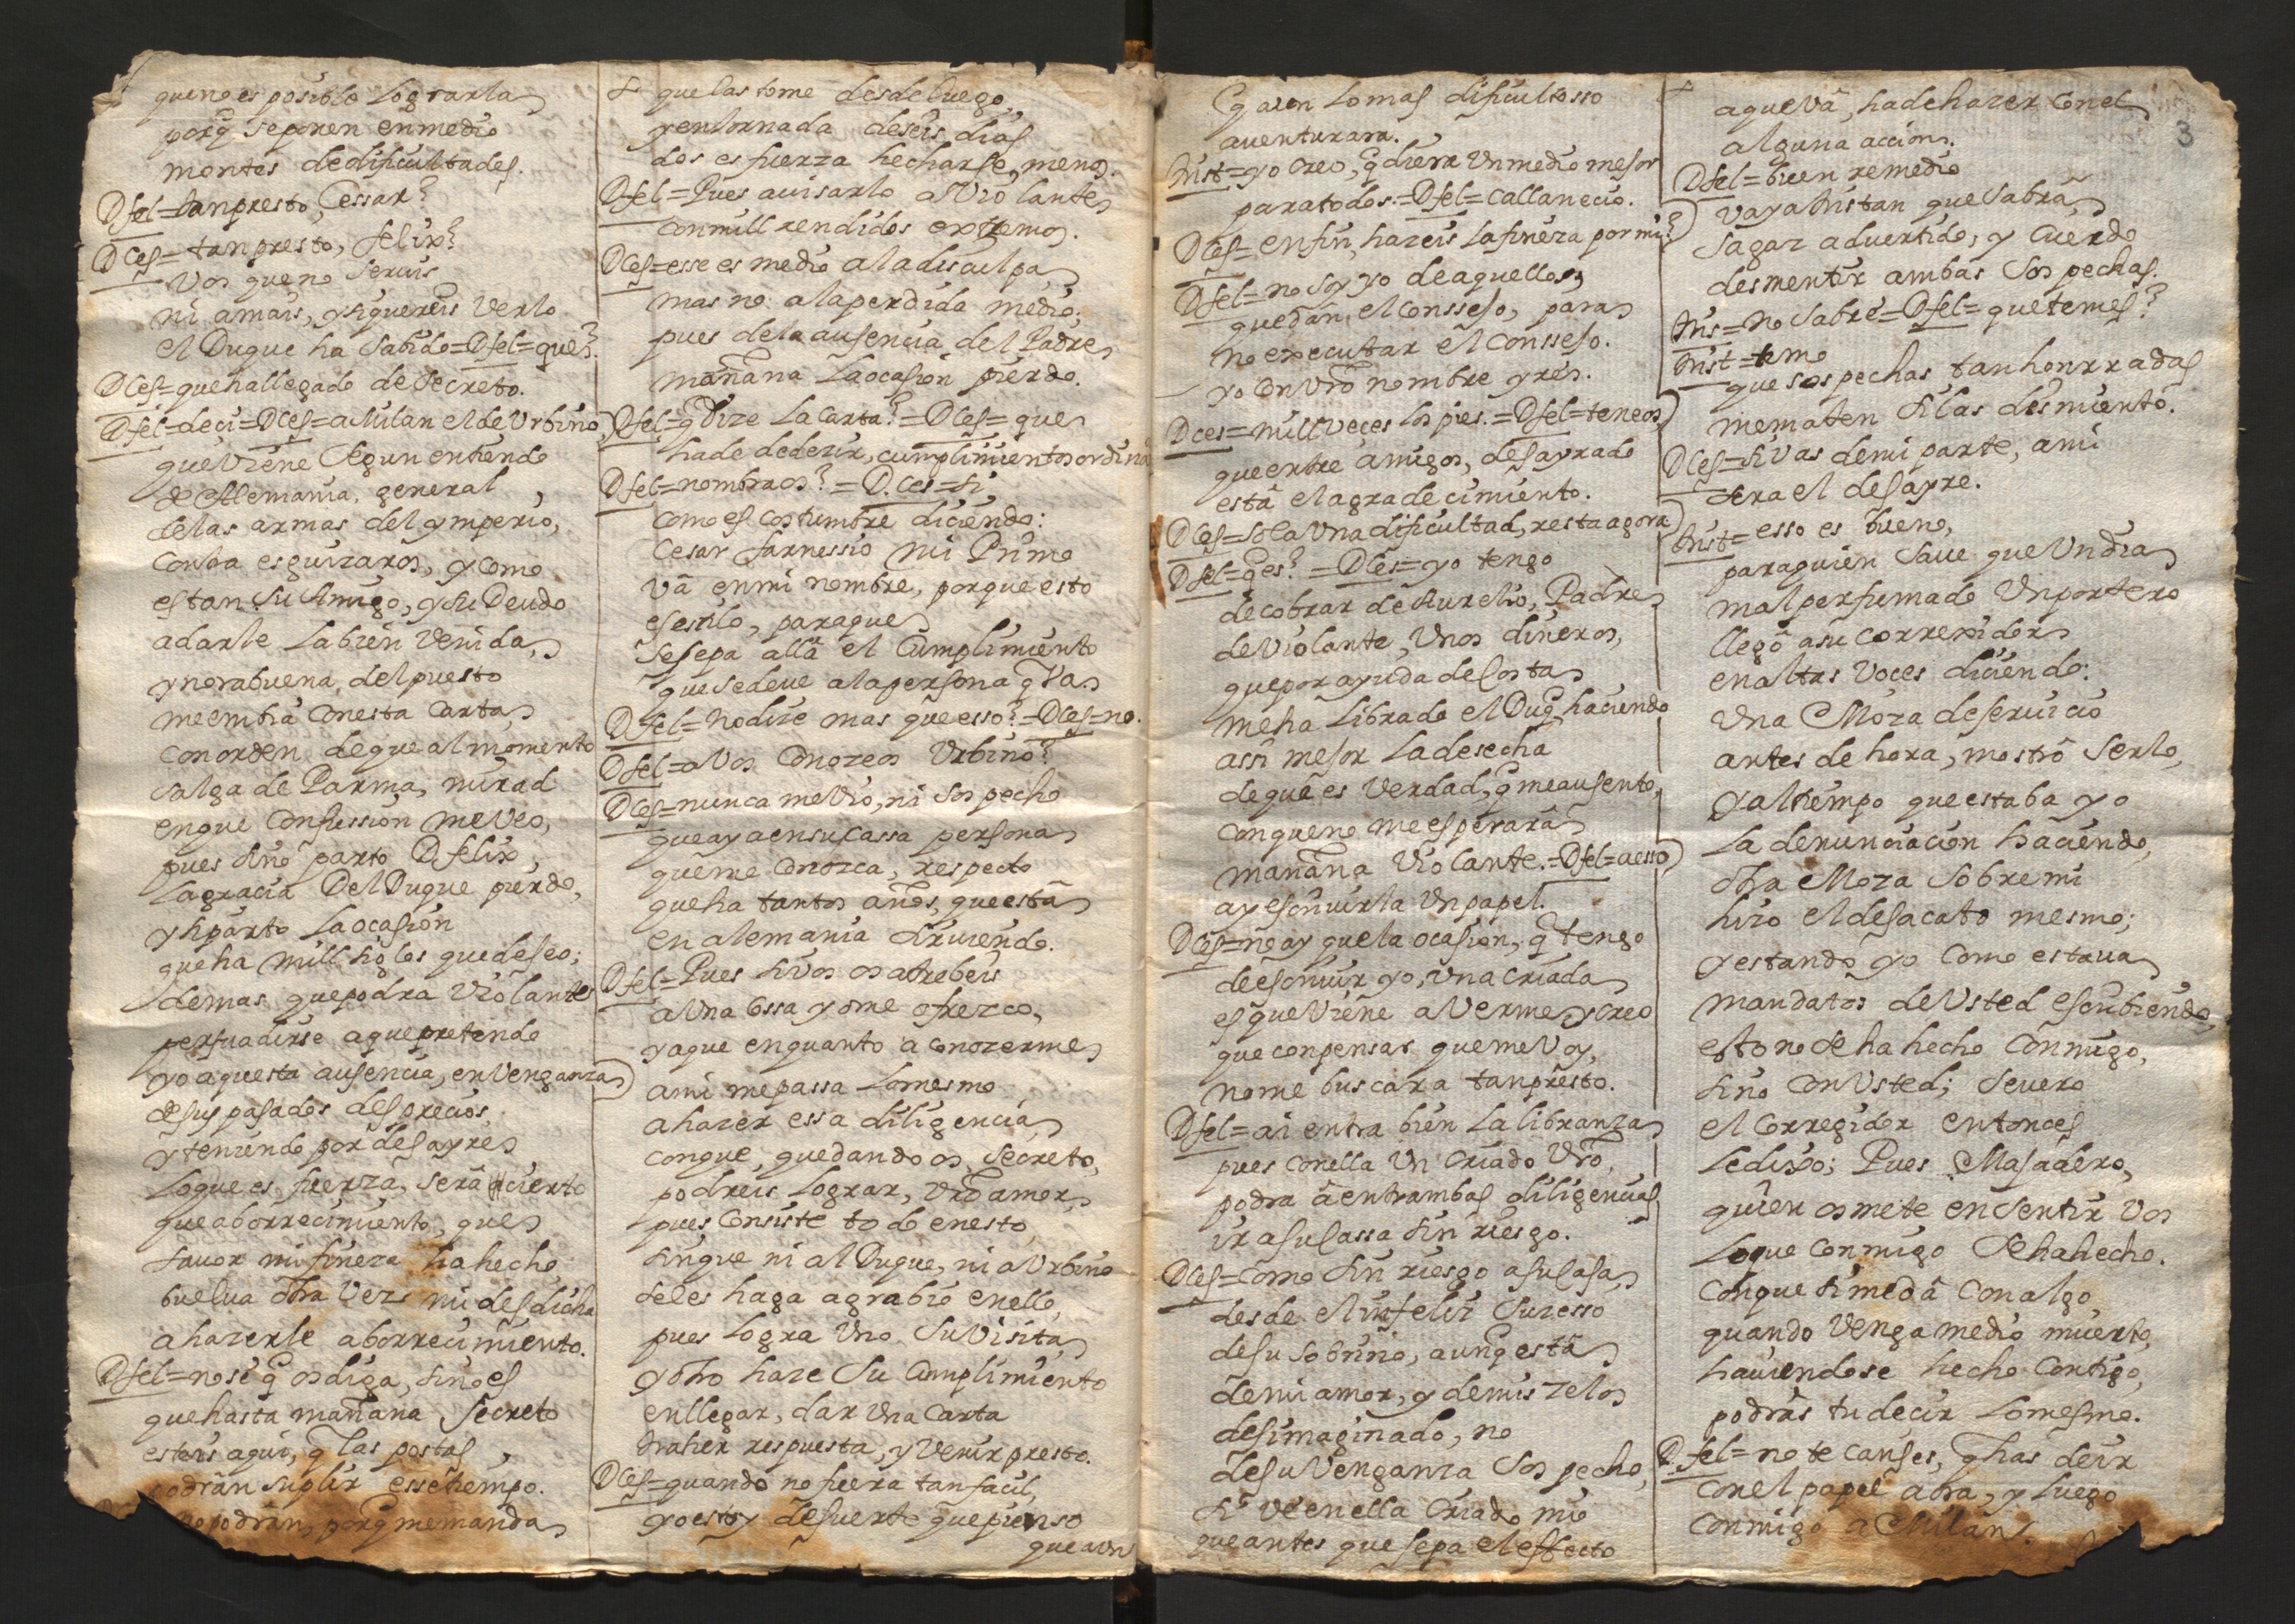 que no es posible lograrla
porq̃ se ponen en medio
montes de dificultades.
D fel = tan presto, Cessar?
D Ces = tan presto, felix?
Vos que no servis
ni amais, y si quereis verlo
el Duque ha sabido = D fel = que?
D Ces = que ha llegado de secreto.
D fel = deci = D Ces = a Milan el de Vrbino
que viene segun entiendo
de Alemania, general
de las armas del ymperio,
contra esguizaros, y como
es tan su Amigo, y su Deudo
a darle la bien venida,
y norabuena del puesto
me embia con esta carta
con orden de que al momento
salga de Parma, mirad
en que confussion me veo,
pues sino parto D felix,
la gracia Del Duque pierdo,
y si parto la ocasion
que ha mill siglos que deseo;
demas que podra Violante
persuadirse a que pretendo
yo aquesta ausencia, en venganza
de sus pasados desprecios,
y teniendo por desayre
lo que es fuerza, serâ cierto
que aborrecimiento, que
favor mi fineza ha hecho
buelua otra vez mi desdicha
a hazerle aborrecimiento.
D fel = no se q̃ os diga, sino es
que hasta mañana secreto
esteis aqui, q̃ las postas
podrân suplir esse tiempo.
no podrân, porq̃ me manda
que las tome desde luego,
y en jornada de seis dias
dos es fuerza hecharse menos.
D fel = Pues avisarlo a Violante
con mill rendidos extremos.
D Ces = esse es medio a la disculpa,
mas no a la perdida medio;
pues de la ausencia del Padre
mañana la ocasion pierdo.
D fel = q̃ dize la carta? = D Ces = que
ha de dezir, cumplimientos ordina
D fel = nombraos? = D. Ces = si
como es costumbre diciendo:
Cesar farnessio mi Primo
vâ en mi nombre, porque esto
es estilo, para que
se sepa allâ el Cumplimiento
que se deve a la persona q̃ va.
D fel = No dize mas que esso? = D Ces = no.
D fel = a Vos conozeos Vrbino?
D Ces = nunca me vio, ni sospecho
que aya en su cassa persona
que me conozca, respecto
que ha tantos años, que estâ
en alemania sirviendo.
D fel = Pues si vos os atrebeis
a Vna cossa yo me ofrezco,
ya que en quanto a conozerme
a mi me passa lo mesmo
a hazer essa diligencia,
con que, quedando os, secreto,
podreis lograr, vr̃o amor,
pues consiste todo en esto
sin que ni al Duque, ni a Vrbino
se les haga agrabio en ello,
pues logra Vno su Visita,
y otro haze su Cumplimiento
en llegar, dar una Carta
traher respuesta, y venir presto.
D Ces = quando no fuera tan facil,
yo estoy de suerte que pienso
que aun
q̃ aun lo mas dificultosso
aventurara.
Trist = yo creo, q̃ diera Vn medio mejor
para todos. = D fel = calla necio.
D Ces = en fin, hazeis la fineza por mi?
D fel = no soy yo de aquellos,
que dan, el Conssejo, para
no executar el Conssejo.
yo en vr̃o nombre yre.
D Ces = mill veces los pies. = D fel = teneos
que entre amigos, desayrado
estâ el agradecimiento.
D Ces = sola Vna dificultad, resta agora
D fel = q̃ es? = D Ces = yo tengo
de cobrar de Aurelio, Padre
de Violante, Vnos dineros,
que por ayuda de Costa
me ha librado el Duq̃, haciendo
assi mejor la desecha
de que es verdad, q̃ me ausento,
con que no me esperarâ
mañana Violante. = D fel = a esso
ay escrivirla Vn papel.
D Ces = no ay que la ocasion, q̃ tengo
de escrivir yo, Vna criada
es que viene a verme, y creo
que con pensar que me voy,
no me buscara tan presto.
D fel = ai entra bien la libranza
pues con ella Vn Criado Vr̃o,
podra â entrambas diligencias,
ir a su cassa sin riesgo.
D Ces = Como sin riesgo a su casa,
desde el infeliz sucesso
de su sobrino, aunq̃ estâ
de mi amor, y de mis zelos
desimaginado, no
de su venganza sospecho,
si ve en ella Criado mio
que antes que sepa el effecto
3
a que vâ, ha de hazer con el
alguna accion.
D fel = buen remedio
vaya Tristan que sabrâ
sagaz advertido, y Cuerdo
desmentir ambas sospechas.
Tris = no sabre = D fel = que temes?
Trist = temo
que sospechas tan honrradas
me maten si las desmiento.
D Ces = si vas de mi parte, a mi
sera el desayre.
Trist = esso es bueno,
para quien save que Vn dia
mal perfumado Vn portero
llegô a su Correxidor
en altas voces diciendo:
Vna Moza de servicio
antes de hora, mostrô serlo,
y al tiempo que estaba yo
la denunciacion haciendo,
otra Moza sobre mi
hizo el desacato mesmo;
y estando yo como estava
mandatos de Vsted escribiendo,
esto no se ha hecho conmigo,
sino con Vsted; Severo
el Corregidor entonces
le dixo; Pues Majadero,
quien os mete en sentir Vos
lo que conmigo se ha hecho.
Con que si me dâ con algo,
quando venga medio muerto,
haviendose hecho contigo,
podrâs tu decir lo mesmo.
D fel = no te canses, q̃ has de ir
con el papel aora, y luego
conmigo a Milan.